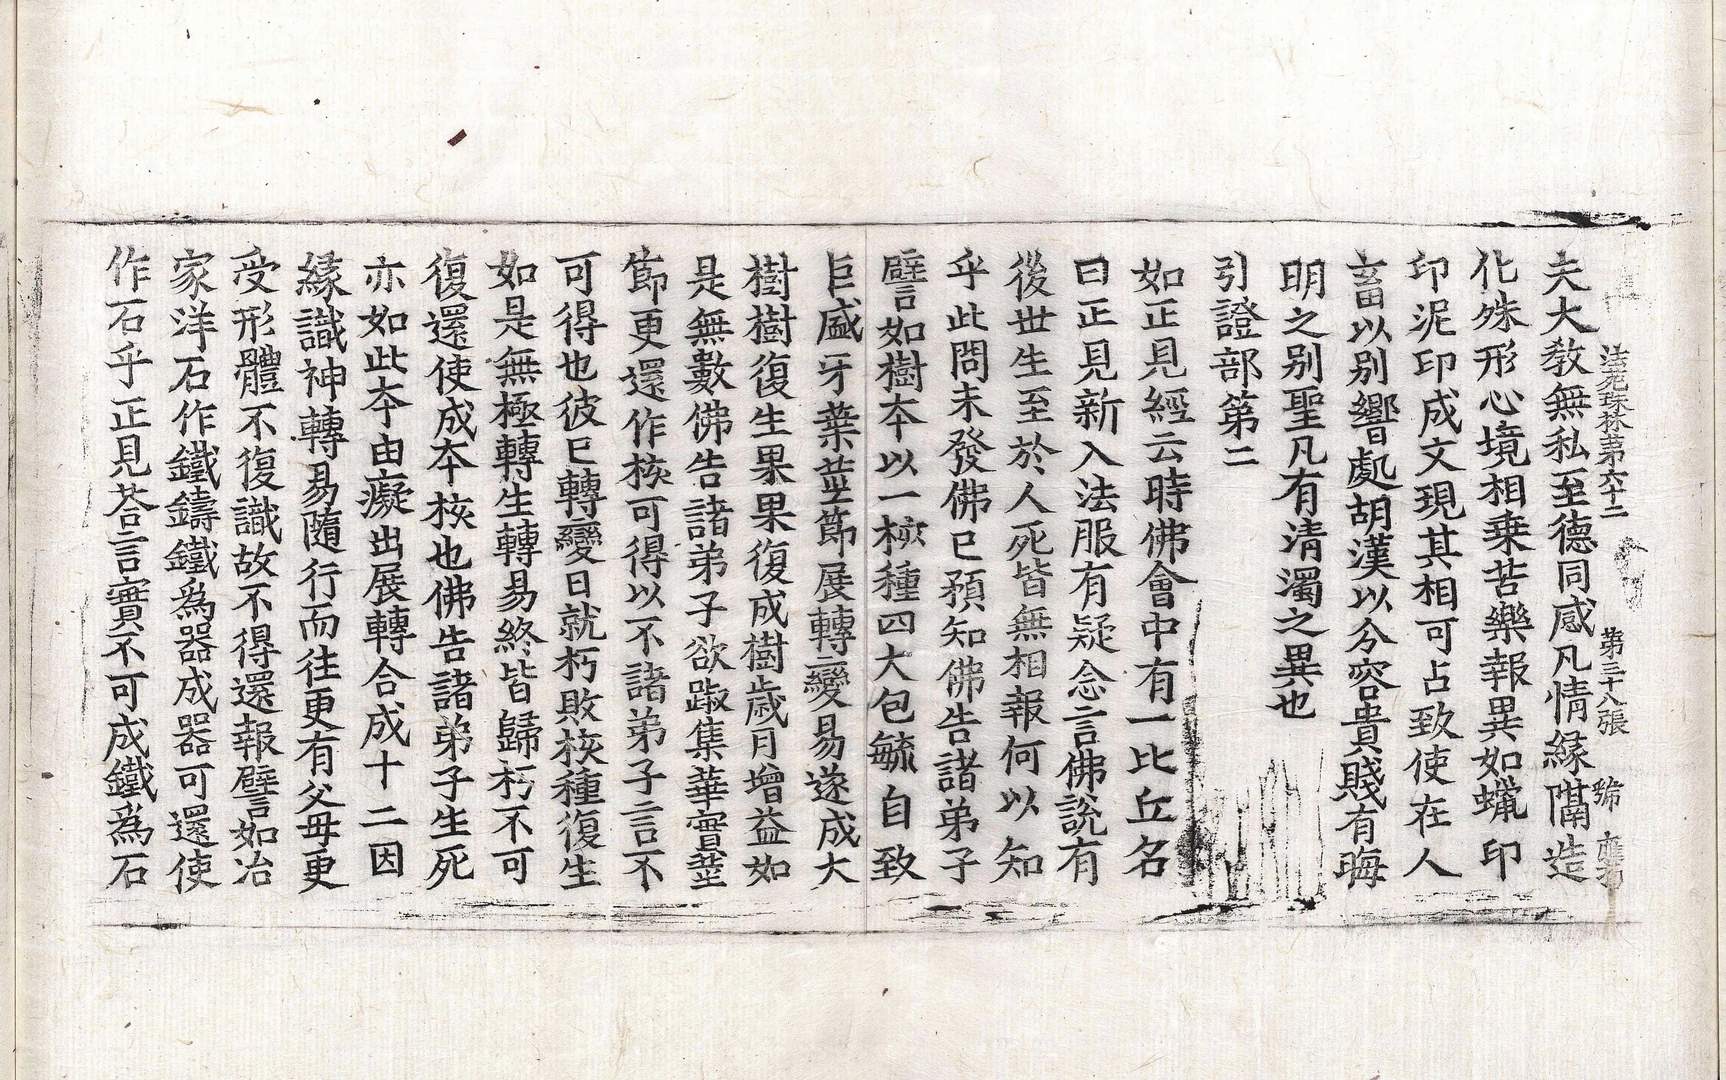 法苑珠林第六十二 第三十八張 號
夫大教無私至德同感凡情緣隔造
化殊形心境相乗苦樂報異如蠟印
印泥印成文現其相可占致使在人
畜以别響處胡漢以分容貴賤有晦
明之别聖凡有清濁之異也
引證部第二
如正見經云時佛會中有一比丘名
曰正見新入法服有疑念言佛說有
後世生至於人死皆無相報何以知
乎此問未發佛已預知佛告諸弟子
譬如樹夲以一核種四大包毓自致
巨盛牙葉莖節展轉變易遂成大
樹樹復生果果復成樹歲月增益如
是無數佛告諸弟子欲踧集華實莖
節更還作核可得以不諸弟子言不
可得也彼已轉變日就朽敗核種復生
如是無極轉生轉易終皆歸朽不可
復還使成夲核也佛告諸弟子生死
亦如此夲由癡出展轉合成十二因
緣識神轉易隨行而往更有父母更
受形體不復識故不得還報譬如冶
家洋石作鐵鑄鐵爲器成器可還使
作石乎正見荅言實不可成鐵爲石